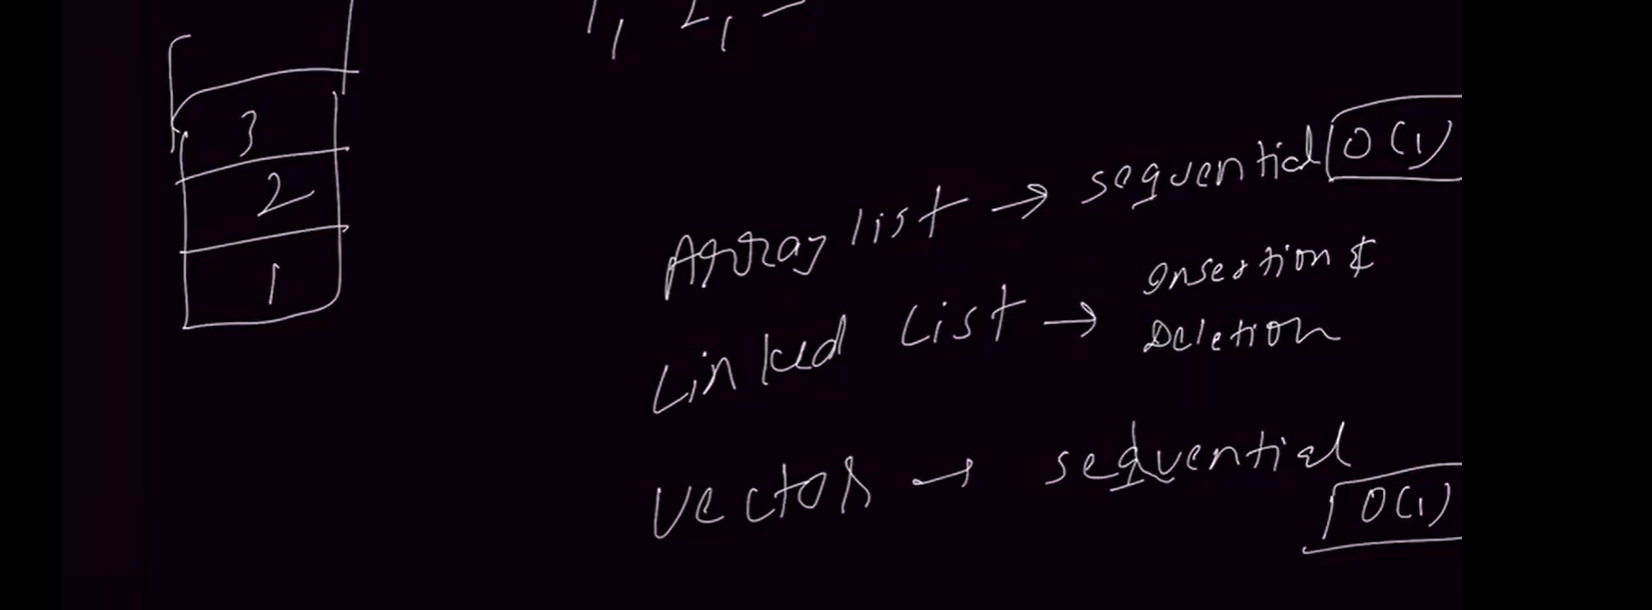 1, 2,
3
2
1
Array list → sequential O(1)
Linked List → Insertion &
Deletion
Vector → sequential
O(1)